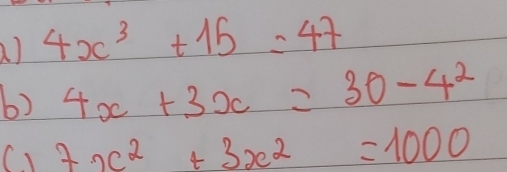 a) 4x³ + 15 = 47
b) 4x + 3x = 30 - 4²
c) 7x² + 3x² = 1000